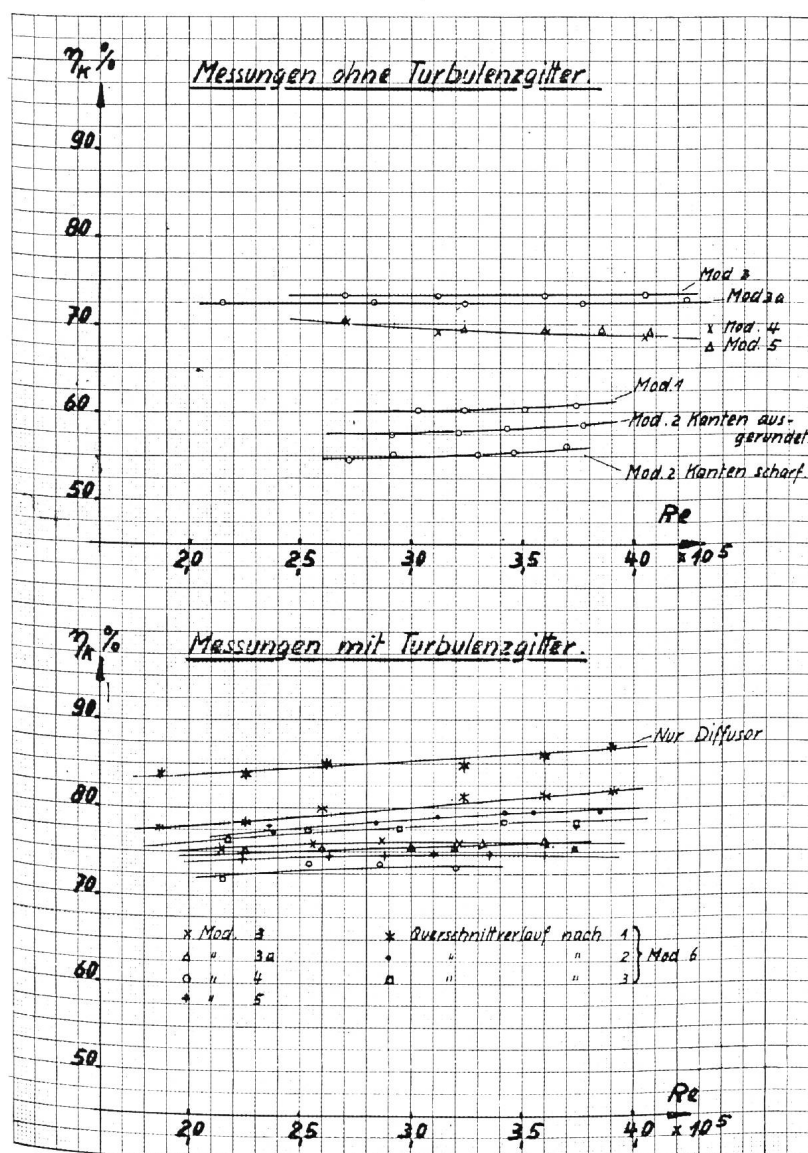 η_K %
Messungen ohne Turbulenzgitter.
90
80
Mod 3
Mod 3a
70
x Mod. 4
△ Mod. 5
Mod. 1
60
Mod. 2 Kanten aus-
gerundet
Mod. 2 Kanten scharf.
50
Re
2,0 2,5 3,0 3,5 4,0 x 10^5
η_K %
Messungen mit Turbulenzgitter.
90
Nur Diffusor
80
70
x Mod. 3
△ " 3a
○ " 4
+ " 5
* Querschnittverlauf nach 1
• " " 2 } Mod 6
□ " " 3
60
50
Re
2,0 2,5 3,0 3,5 4,0 x 10^5